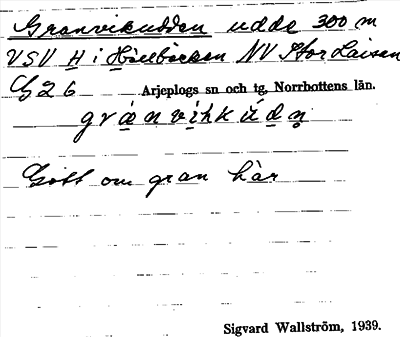 Granvikudden udde 300 m
VSV H i Hällbäcken NV Stor Laisan
G 26 Arjeplogs sn och tg, Norrbottens län.
grạnvihkúdn
Gott om gran här
Sigvard Wallström, 1939.